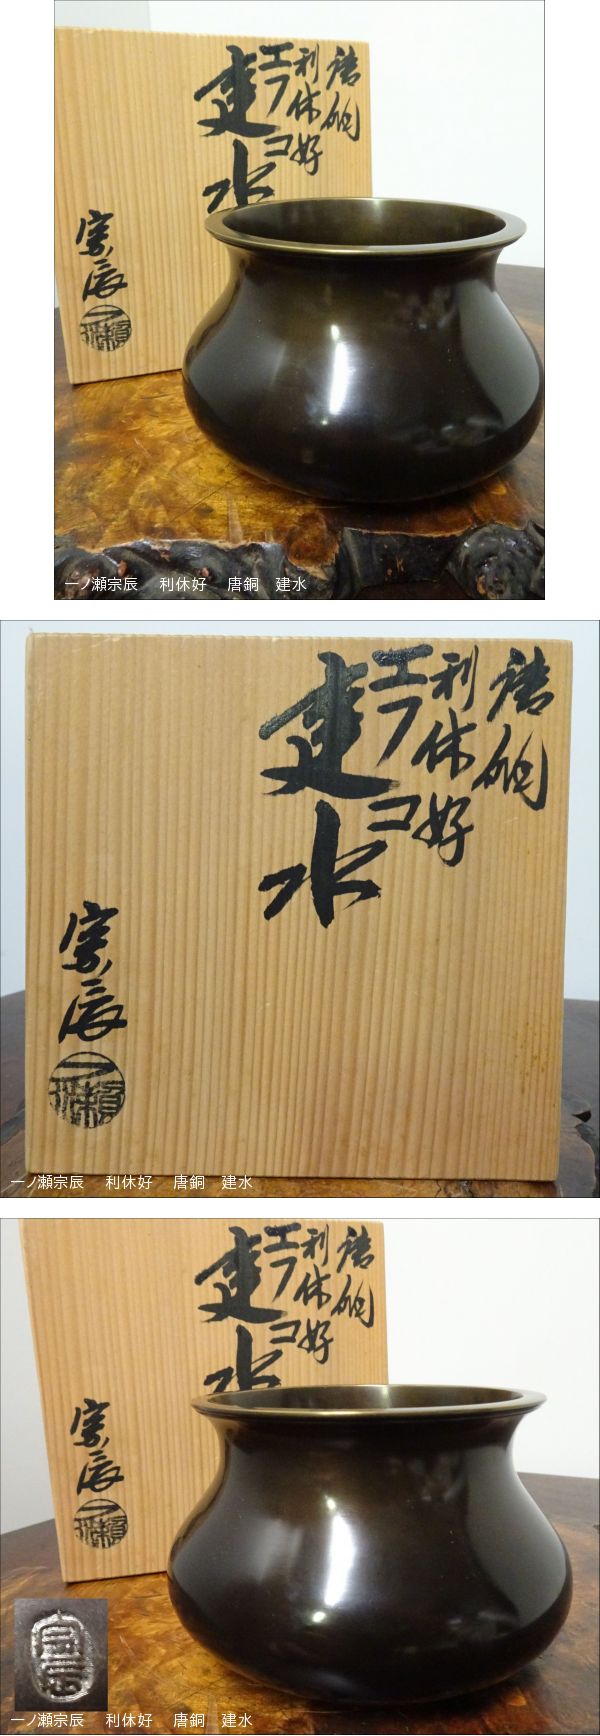 唐銅
利休好
エフコ
建水
宗辰
一ノ瀬宗辰 利休好 唐銅 建水
唐銅
利休好
エフコ
建水
宗辰
一ノ瀬宗辰 利休好 唐銅 建水
唐銅
利休好
エフコ
建水
宗辰
宗辰
一ノ瀬宗辰 利休好 唐銅 建水